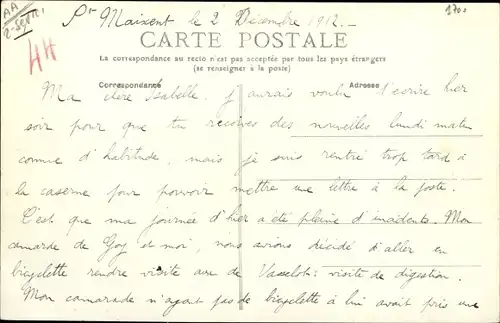 St Maixent le 2 Décembre 1912.-
CARTE POSTALE
La correspondance au recto n'est pas acceptée par tous les pays étrangers
(se renseigner à la poste)
Correspondance
Adresse
Ma chère Isabelle, j'aurais voulu t'écrire hier
soir pour que tu recoives des nouvelles lundi matin
comme d'habitude, mais je suis rentré trop tard à
la caserne pour pouvoir mettre une lettre à la poste.
C'est que ma journée d'hier a été pleine d'incidents. Mon
camarade de Goy et moi, nous avions décidé d'aller en
bicyclette rendre visite aux de Vasselot: visite de digestion.
Mon camarade n'ayant pas de bicyclette à lui avait pris une